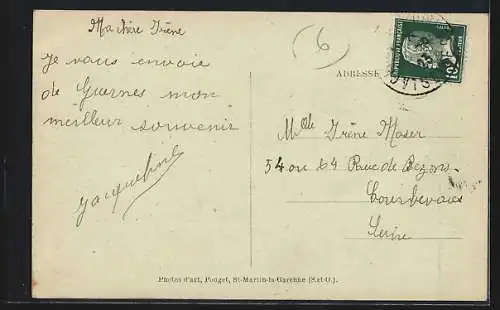 Ma chère Irène
Je vous envoie
de Guernes mon
meilleur souvenir
Jacqueline
6
ADRESSE
Mlle Irène Moser
54 ou 64 Rue de Bezons
Courbevoie
Seine
REPUBLIQUE FRANÇAISE
Photos d'art, Pouget, St-Martin-la-Garenne (S.et-O.).